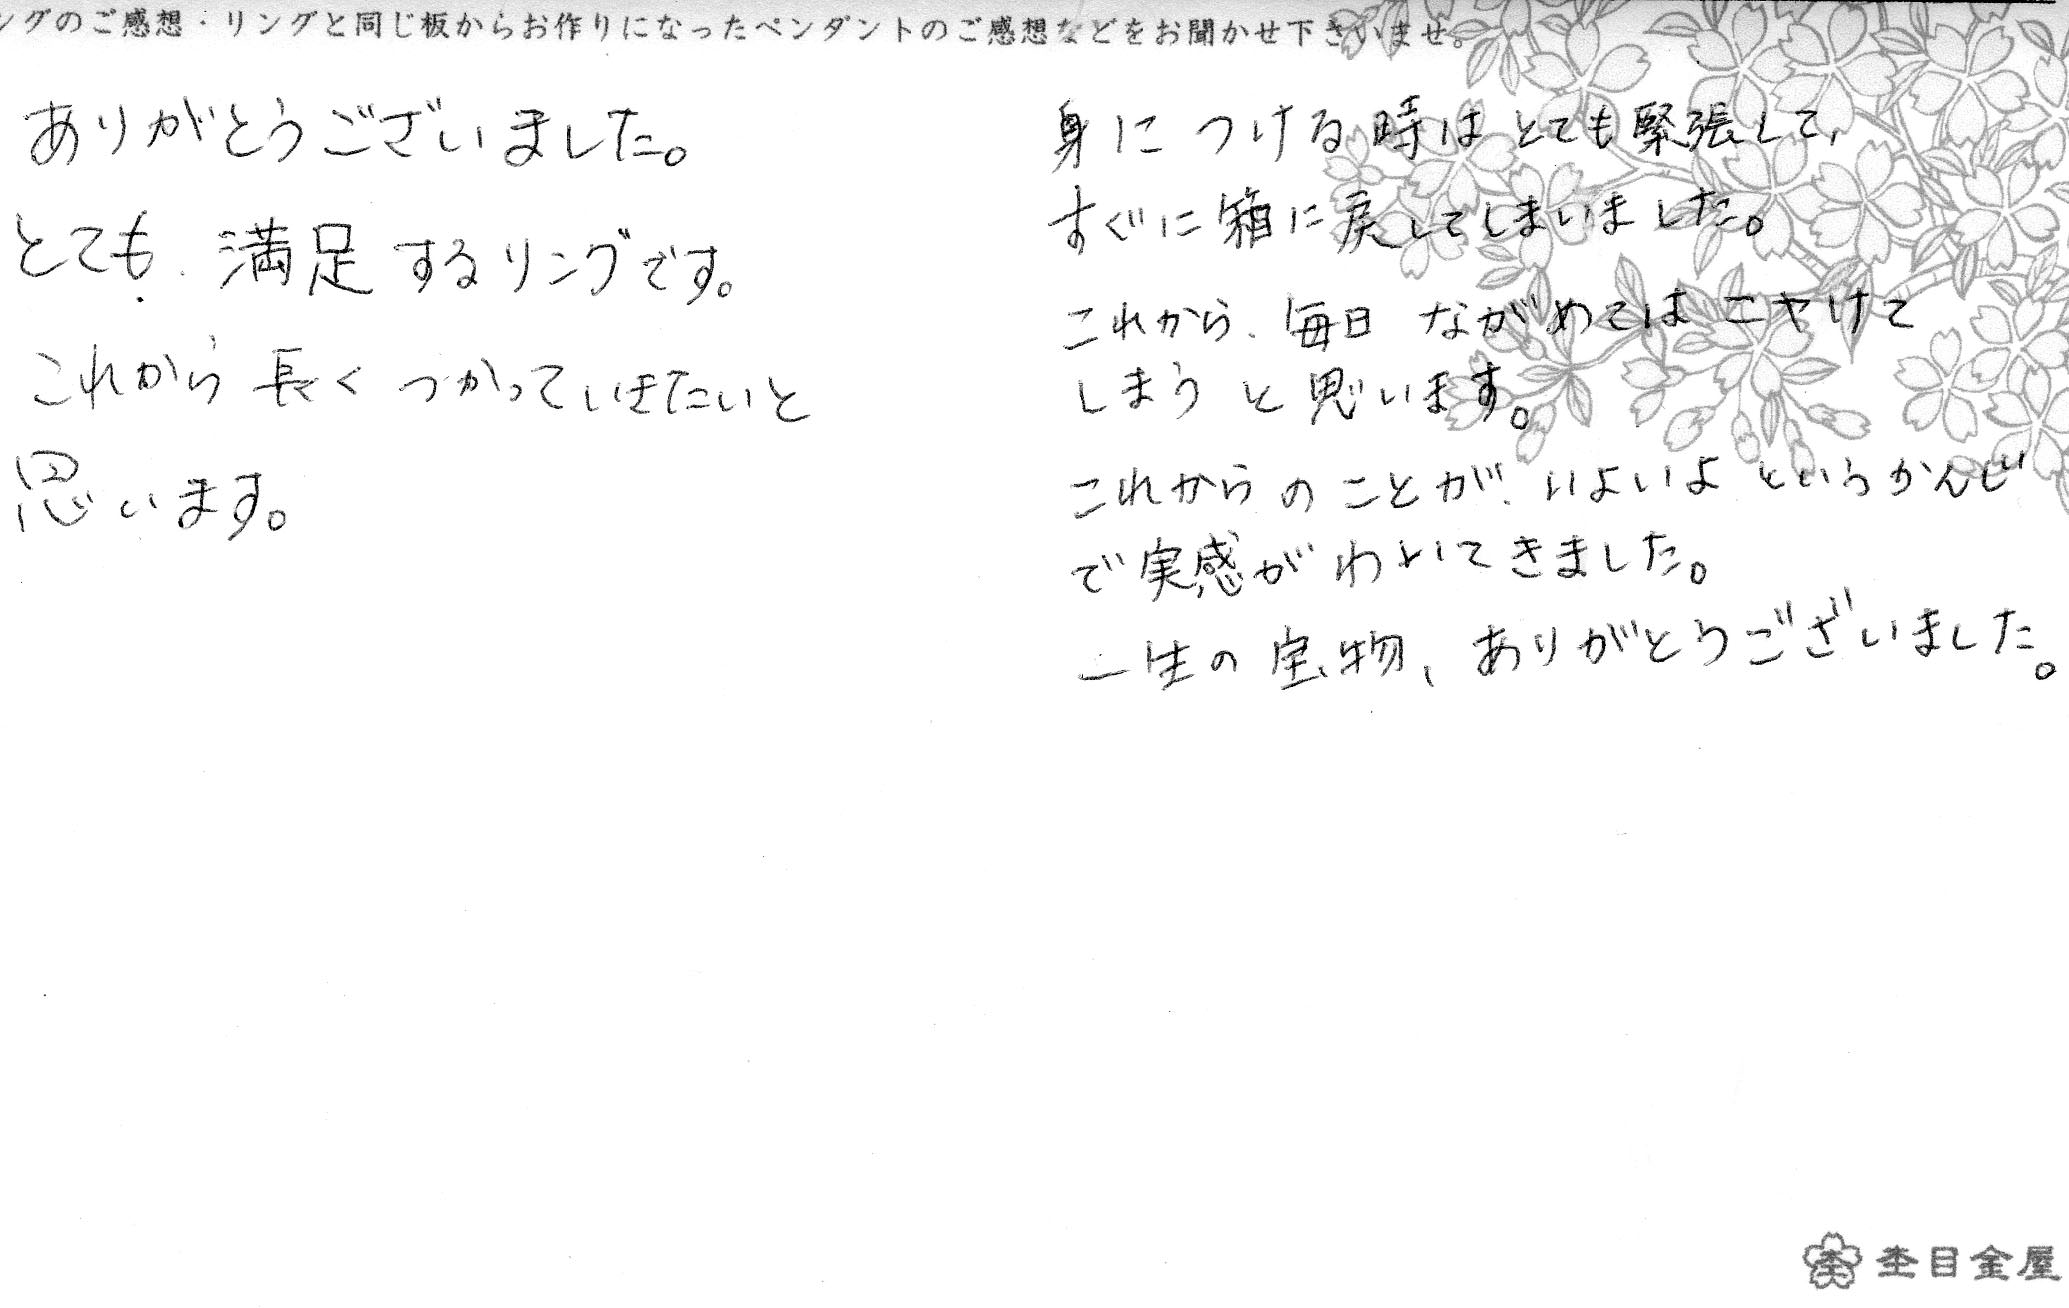 ングのご感想・リングと同じ板からお作りになったペンダントのご感想などをお聞かせ下さいませ。
ありがとうございました。
とても、満足するリングです。
これから長くつかっていきたいと
思います。
身につける時はとても緊張して、
すぐに箱に戻してしまいました。
これから、毎日ながめてはニヤけて
しまうと思います。
これからのことが、いよいよというかんじ
で実感がわいてきました。
一生の宝物、ありがとうございました。
杢目金屋